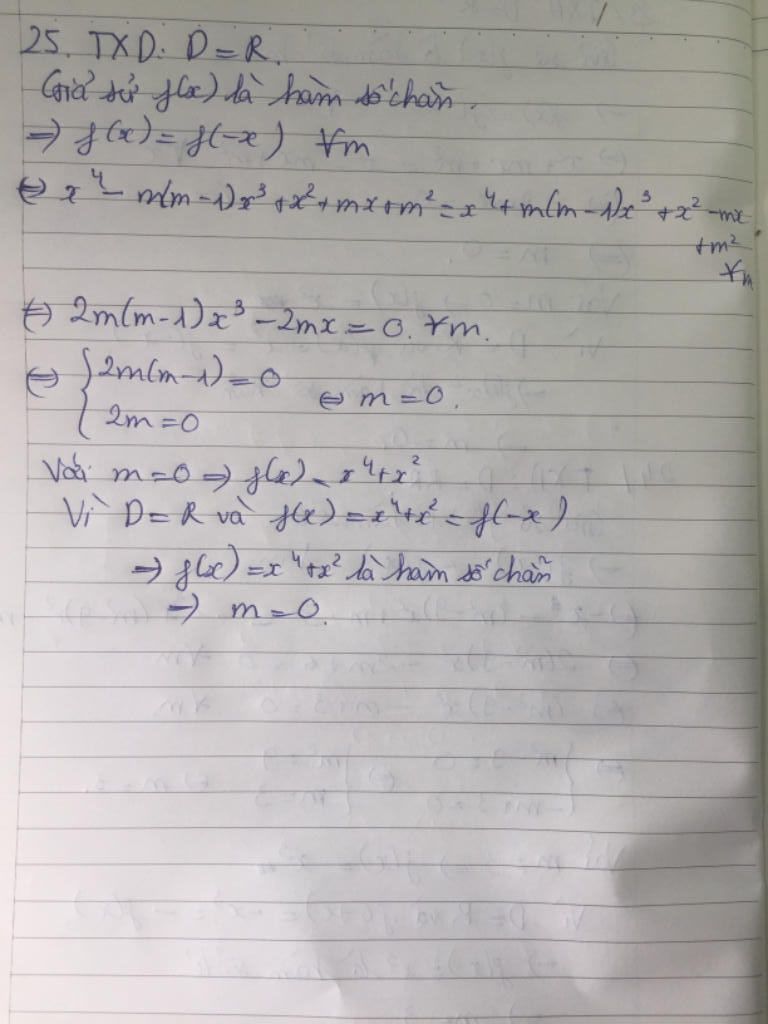 25. TXD: D = R.
Giả sử f(x) là hàm số chẵn.
⇒ f(x) = f(-x) ∀m
⇔ x⁴ - m(m-1)x³ + x² + mx + m² = x⁴ + m(m-1)x³ + x² - mx
+ m²
∀m
⇔ 2m(m-1)x³ - 2mx = 0. ∀m.
⇔ { 2m(m-1) = 0
2m = 0 ⇔ m = 0.
Với m = 0 ⇒ f(x) = x⁴ + x²
Vì D = R và f(x) = x⁴ + x² = f(-x)
⇒ f(x) = x⁴ + x² là hàm số chẵn
⇒ m = 0.